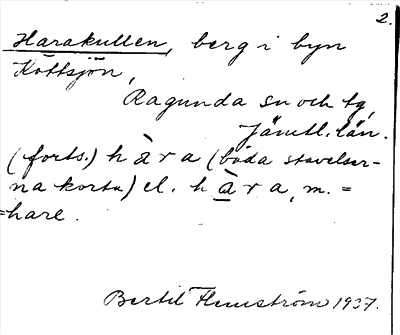 2.
Harakullen, berg i byn
Köttsjön,
Ragunda sn och tg,
Jämtl. län.
(forts.) hàra (båda stavelser-
na korta) el. hàra, m. =
=hare.
Bertil Flemström 1937.